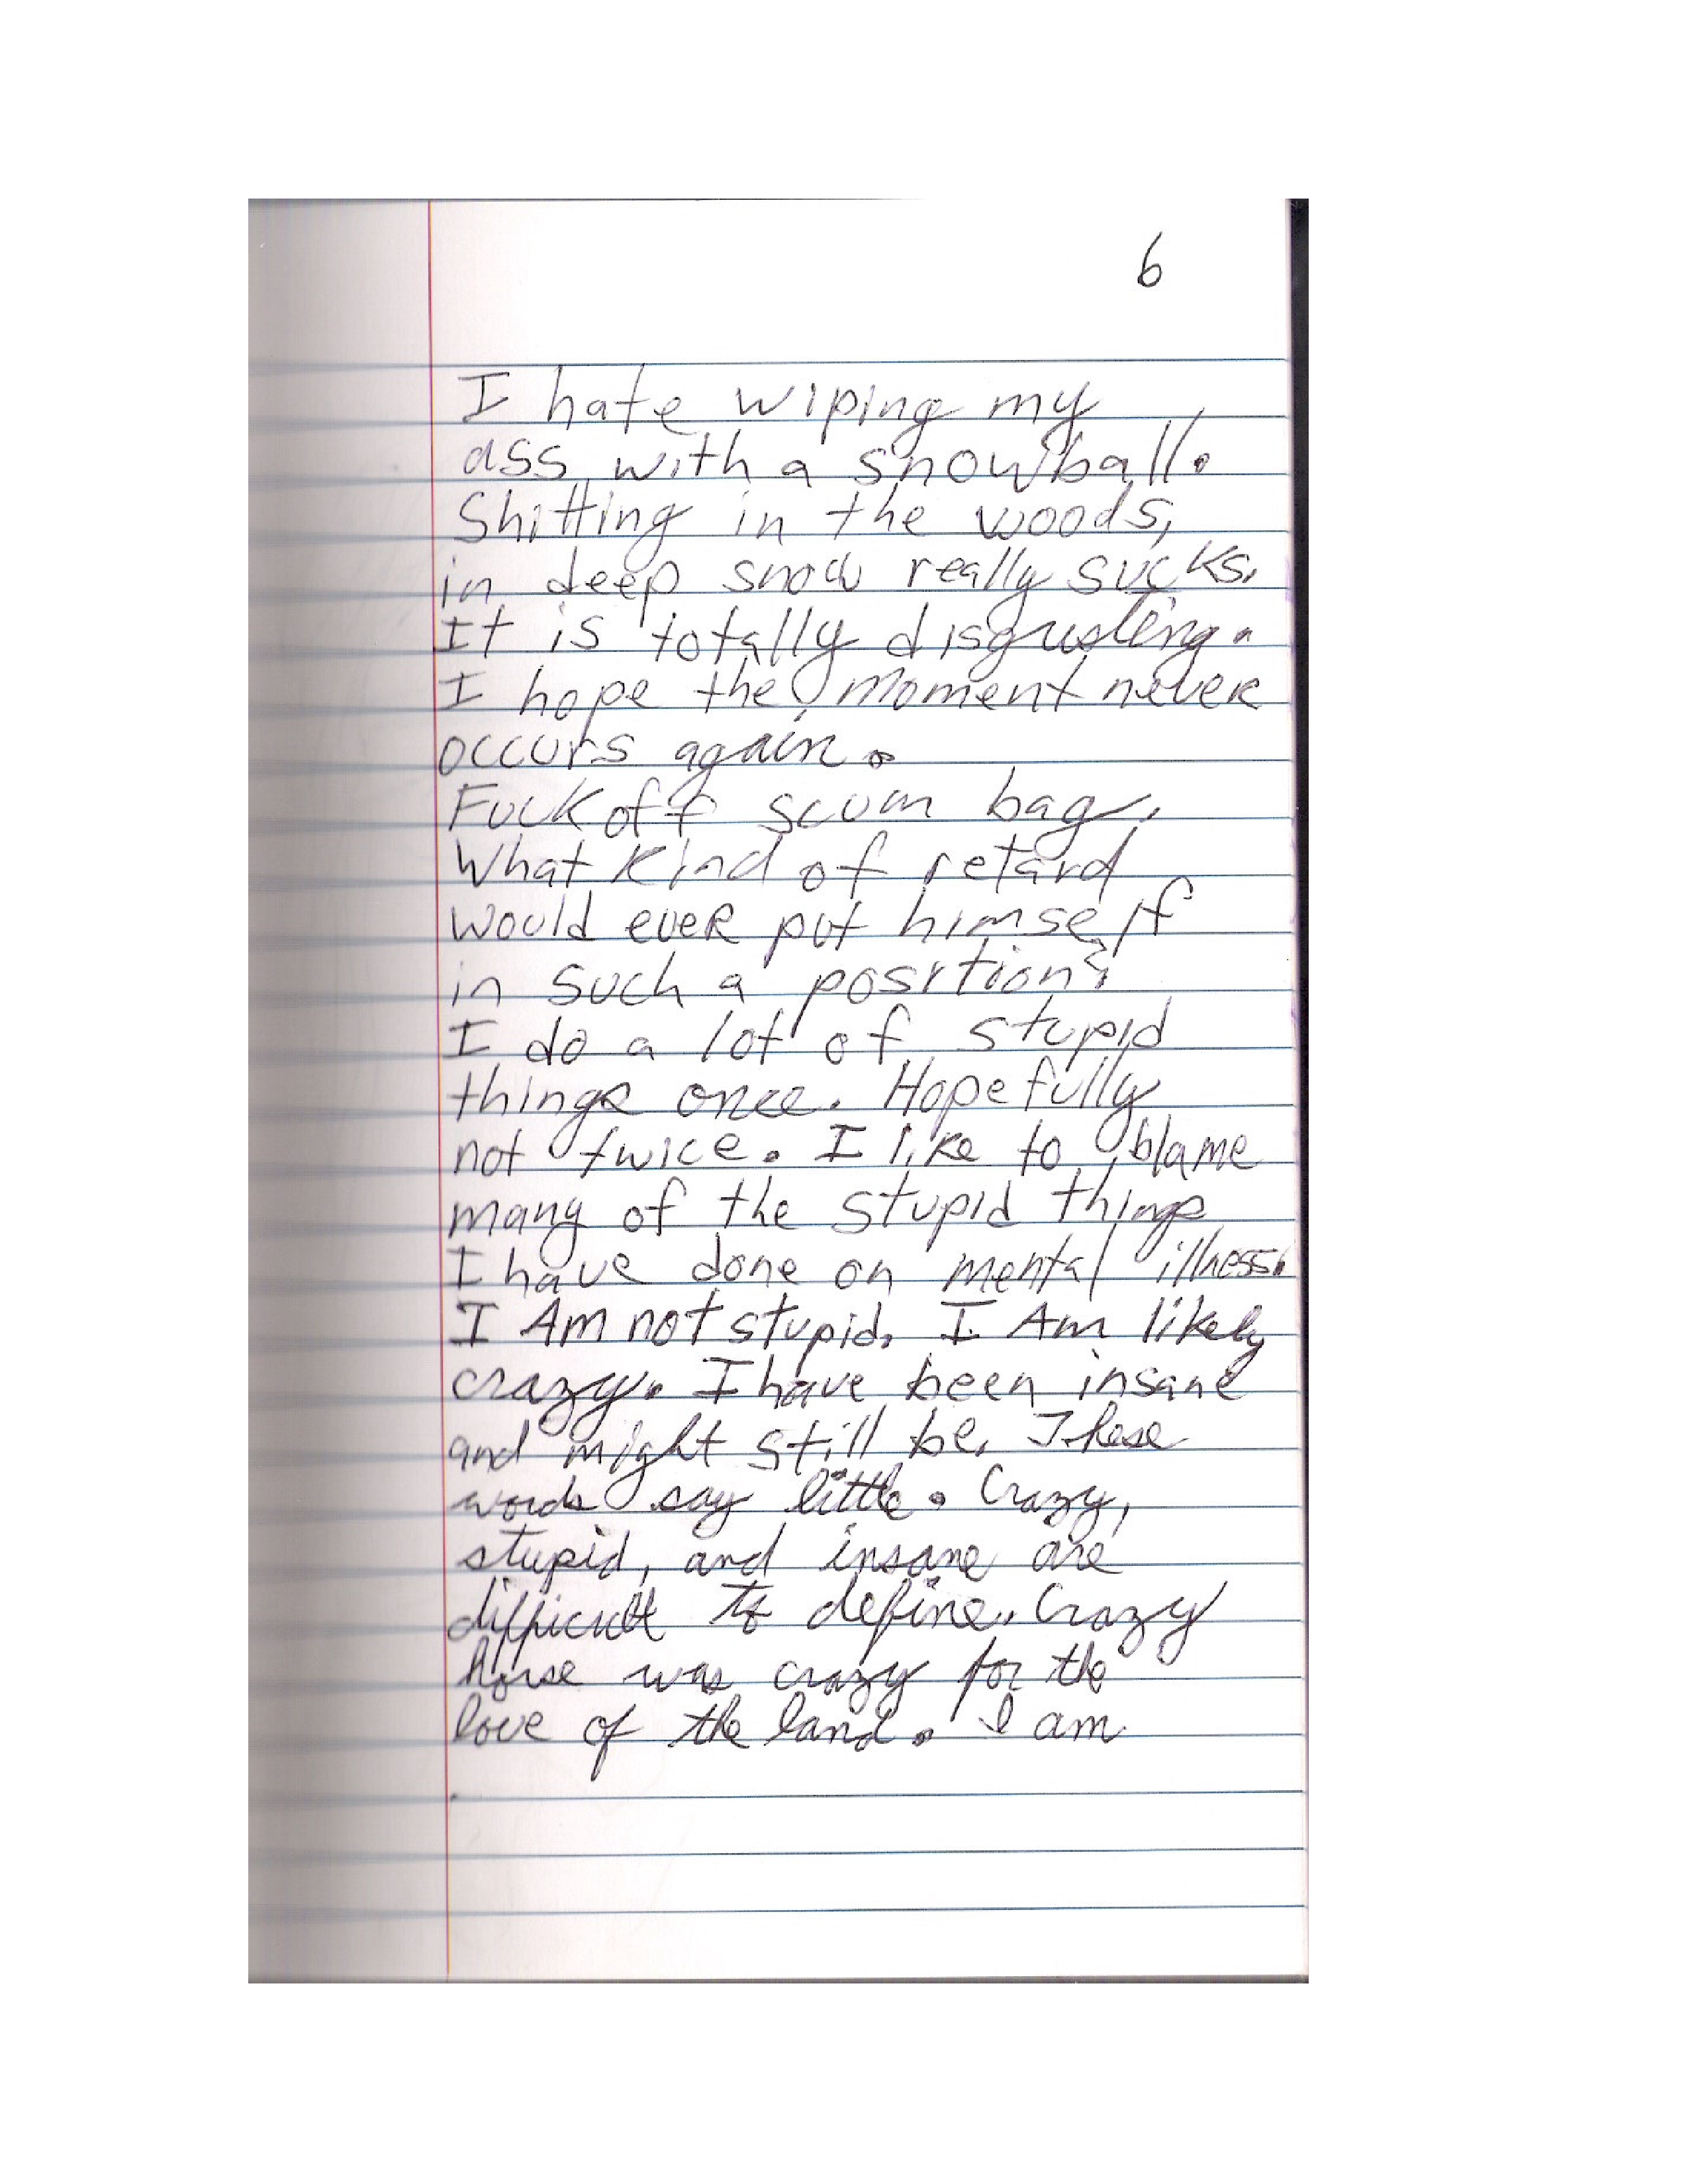 6
I hate wiping my
ass with a snowball.
Shitting in the woods,
in deep snow really sucks.
It is totally disgusting.
I hope the moment never
occurs again.
Fuck off scum bag.
What kind of retard
would ever put himself
in such a position?
I do a lot of stupid
things once. Hopefully
not twice. I like to blame
many of the stupid things
I have done on mental illness.
I Am not stupid. I Am likely
crazy. I have been insane
and might still be. These
words say little. Crazy,
stupid, and insane are
difficult to define. Crazy
horse was crazy for the
love of the land. I am